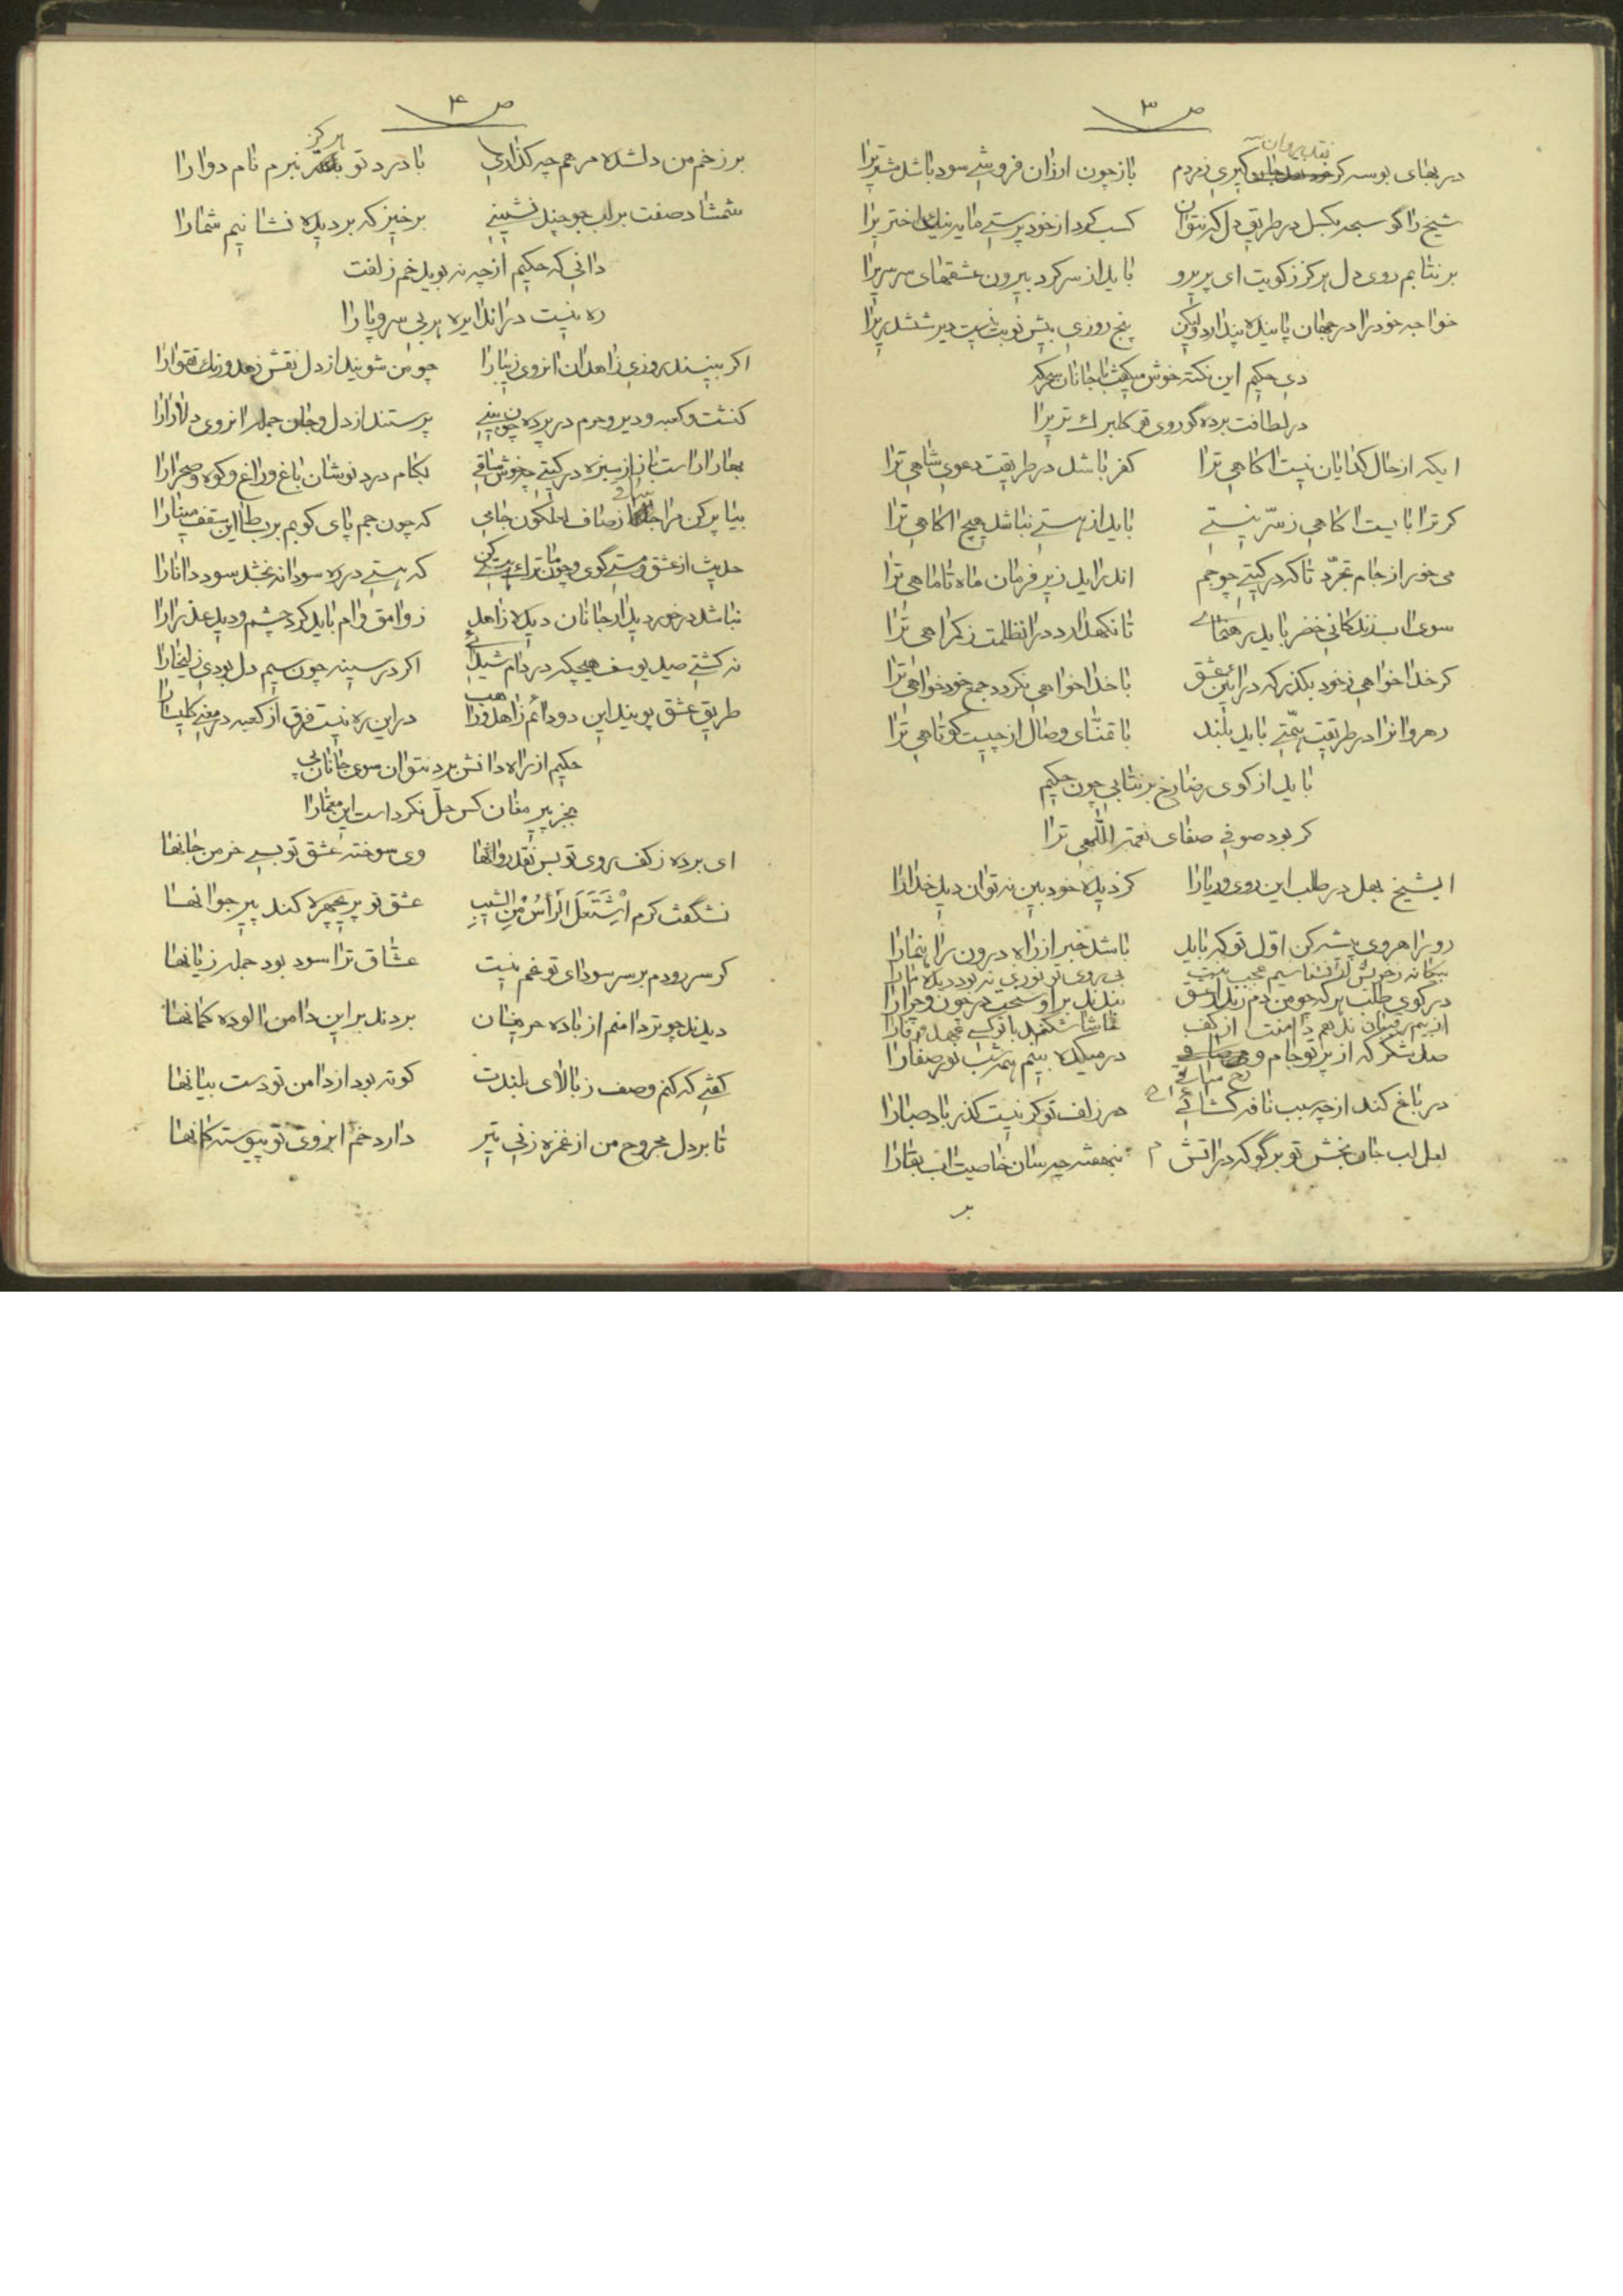 ص ۳
نقد روان
در بهای بوسه کر کیری ز مردم بازچون ارزان فروشی سود باشد مشتریرا
شیخ را کو سبحه بکسل در طریق دل که نتوان کسب کرد از خود پرستی مایه نیک اختریرا
بر نتابم روی دل هرکز ز کویت ای پریرو باید از سر کرد بیرون عشقهای سرسریرا
خواجه خود را در جهان پاینده پندارد ولیکن پنج روزی بیش نوبت نیست دیر ششدریرا
دی حکیم این نکته خوش میکفت با جانان که
در لطافت برده کوی روی تو کلبرک تریرا
ایکه از حال کدایان نیست اکاهی ترا کفر باشد در طریقت دعوی شاهی ترا
کر ترا بایست اکاهی ز سرّ نیستی باید از هستی نباشد هیچ اکاهی ترا
می خور از جام تجرّد تا که در کیتی چو جم اندر اید زیر فرمان ماه تا ماهی ترا
سوی اب زندکانی خضر باید رهنمای تا نکهدارد در انظلمت ز کمراهی ترا
کر خدا خواهی ز خود بکذر که در ائین عشق با خدا خواهی نکردد جمع خود خواهی ترا
رهروانرا در طریقت همّتی باید بلند با تمنّای وصال از چیست کوتاهی ترا
باید از کوی رضا رخ بر نتابی چون حکیم
کر بود صوفی صفای نعمت اللهی ترا
ایشیخ بهل در طلب این روی و ریا را کز دیده خود بین نه توان دید خدا را
رو راهروی پیشه کن اوّل تو که باید باشد خبر از راه درون راهنما را
بیکانه ز خویش ار نشناسیم عجب نیست بی روی تو نوری نه بود دیده ما را
در کوی طلب هر که چو من دم زند از عشق بندند بر او سخت در چون و چرا را
از بیم رقیبان ندهم دامنت از کف
صد شکر که از پرتو جام و در میکده بینم همه شب نور صفا را
در باغ کند از چه سبب نافه کشائی در زلف تو کر نیست کذر باد صبا را
لعل لب جان بخش تو بر کو که در اتش بنهفته چه سان خاصیت اب بقا را
بر
ص ۴
هرکز
بر زخم من دلشده مرهم چه کذاری با درد تو نبرم نام دوا را
شمشاد صفت بر لب جو چند نشینی برخیز که بر دیده نشانیم شما را
دانی که حکیم از چه نه بوید خم زلفت
ره نیست در اندایره هر بی سر و پا را
اکر بینند روزی زاهدان انروی زیبا را چو من شویند از دل نقش زهد و رنک تقوا را
کنشت و کعبه و دیر و حرم در پرده چون بینی پرستند از دل و جان جمله انروی دلارا را
بهار اراست باز از سبزه در کیتی چه خوش ساقی بکام درد نوشان باغ و راغ و کوه و صحرا را
بیا پر کن مرا از صاف لعلکون جامی که چون جم پای کوبم بر بساط این سقف مینا را
حدیث از عشق و مستی کوی و چون ما ترک هستی کن که هستی در ره سودا نه بخشد سود دانا را
نباشد در خور دیدار جانان دیده زاهد ز وامق وام باید کرد چشم و دید عذرا را
نه کشتی صید یوسف هیچکه در دام شیدائی اکر در سینه چون سیم دل بودی زلیخا را
طریق عشق پویند این دو دائم زاهد و راهب در این ره نیست فرق از کعبه در معنی کلیسا را
حکیم از راه دانش برد نتوان سوی جانان پی
بجز پیر مغان کس حلّ نکرد است این معمّا را
ای برده ز کف روی تو بس نقد روانها وی سوخته عشق تو بسی خرمن جانها
نشکفت کرم اشْتَعَلَ الرَأسُ مِنَ الشیبِ عشق تو پریچهره کند پیر جوانها
کر سر رودم بر سر سودای تو غم نیست عشّاق ترا سود بود جمله زیانها
دیدند چو تر دامنم از باده حریفان بردند بر این دامن الوده کمانها
کفتی که کنم وصف ز بالای بلندت کوته بود از دامن تو دست بیانها
تا بر دل مجروح من از غمزه زنی تیر دارد خم ابروی تو پیوسته کمانها